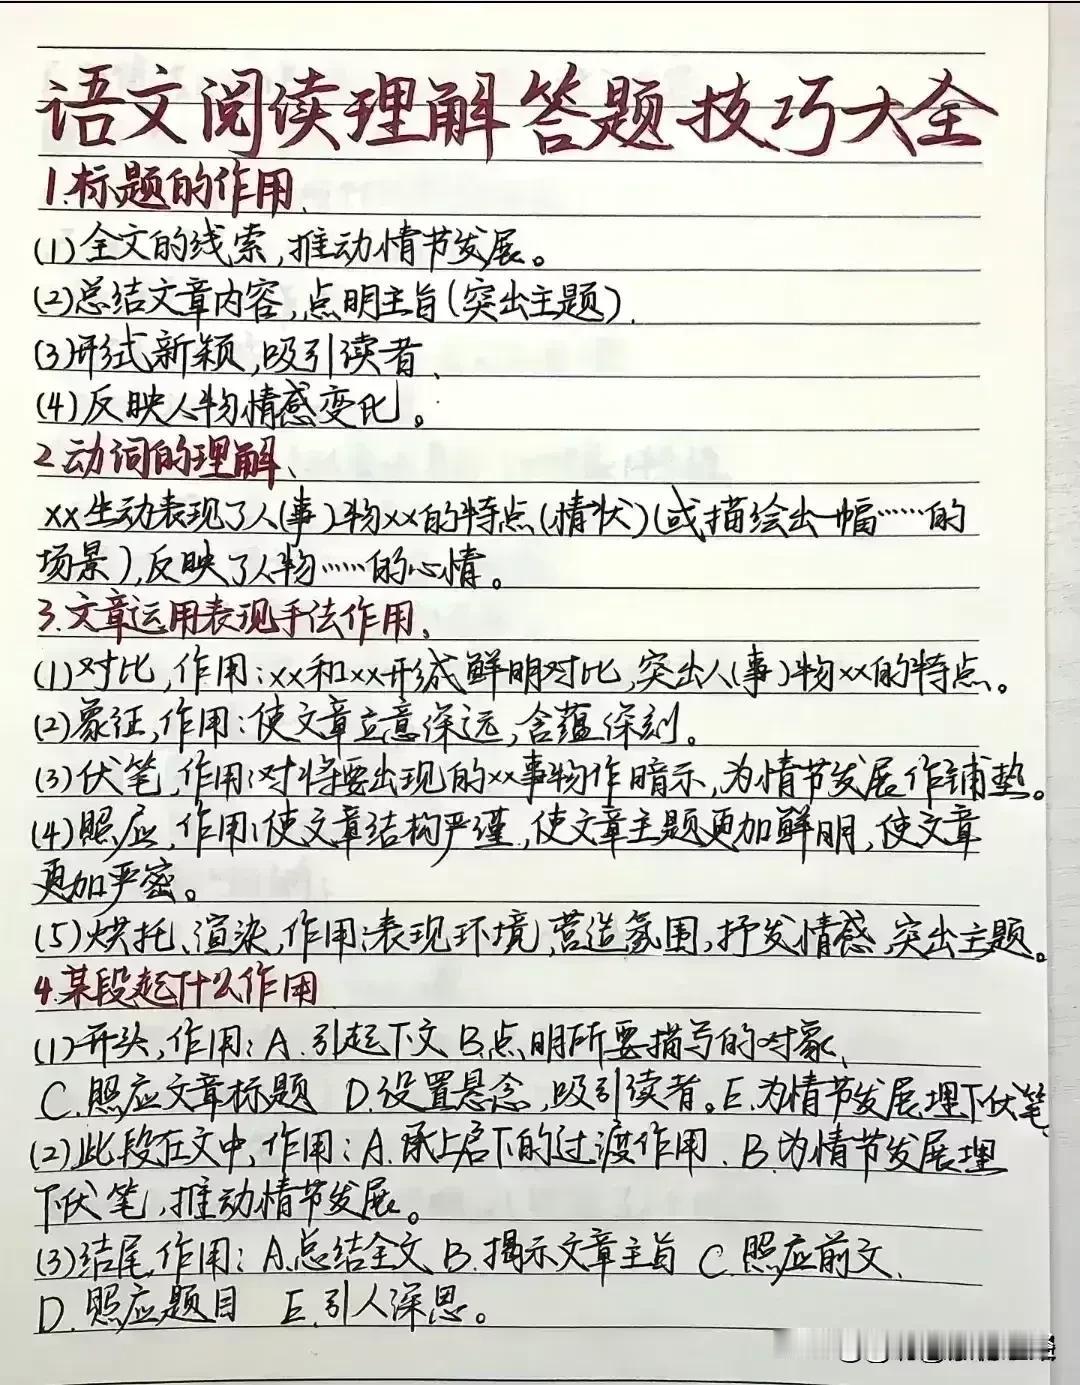 语文阅读理解答题技巧大全
1.标题的作用、
(1)全文的线索,推动情节发展。
(2)总结文章内容,点明主旨(突出主题).
(3)形式新颖,吸引读者、
(4)反映人物情感变化。
2.动词的理解、
xx生动表现了人(事)物xx的特点(情状)(或描绘出一幅……的
场景),反映了人物……的心情。
3.文章运用表现手法作用、
(1)对比,作用:xx和xx形成鲜明对比,突出人(事)物xx的特点。
(2)象征,作用:使文章立意深远,含蕴深刻。
(3)伏笔,作用:对将要出现的xx事物作暗示,为情节发展作铺垫。
(4)照应,作用:使文章结构严谨,使文章主题更加鲜明,使文章
更加严密。
(5)烘托、渲染,作用:表现环境,营造氛围,抒发情感,突出主题。
4.某段起什么作用
(1)开头,作用:A.引起下文 B.点明所要描写的对象、
C.照应文章标题 D.设置悬念,吸引读者。E.为情节发展埋下伏笔、
(2)此段在文中,作用:A.承上启下的过渡作用. B.为情节发展埋
下伏笔,推动情节发展。
(3)结尾,作用:A.总结全文 B.揭示文章主旨 C.照应前文.
D.照应题目 E.引人深思。